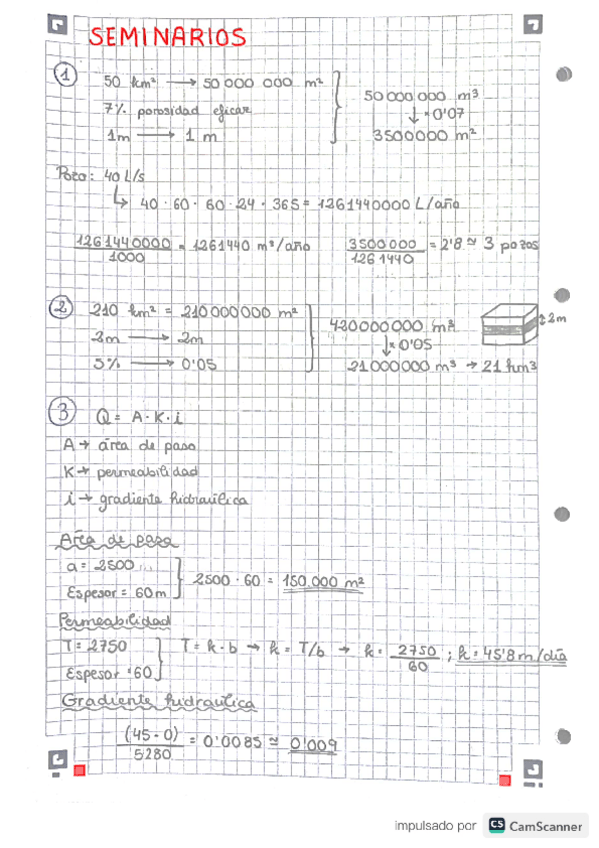 SEMINARIOS
1 50 km² → 50 000 000 m²
7% porosidad eficaz
1m → 1 m
50 000 000 m³
↓ × 0'07
3500000 m²
Pozo: 40 L/s
↳ 40 · 60 · 60 · 24 · 365 = 1261440000 L/año
1261440000 / 1000 = 1261440 m³/año
3500000 / 1261440 = 2'8 ≃ 3 pozos
2 210 km² = 210000000 m²
2m → 2m
5% → 0'05
420000000 m³
↓ × 0'05
21000000 m³ → 21 hm³
2m
3 Q = A · K · i
A → área de paso
K → permeabilidad
i → gradiente hidraúlica
Área de paso
a = 2500
Espesor = 60m
2500 · 60 = 150.000 m²
Permeabilidad
T = 2750
Espesor = 60
T = k · b → k = T/b → k = 2750 / 60 ; k = 45'8 m/día
Gradiente hidraúlica
(45 - 0) / 5280 = 0'0085 ≃ 0'009
impulsado por CS CamScanner